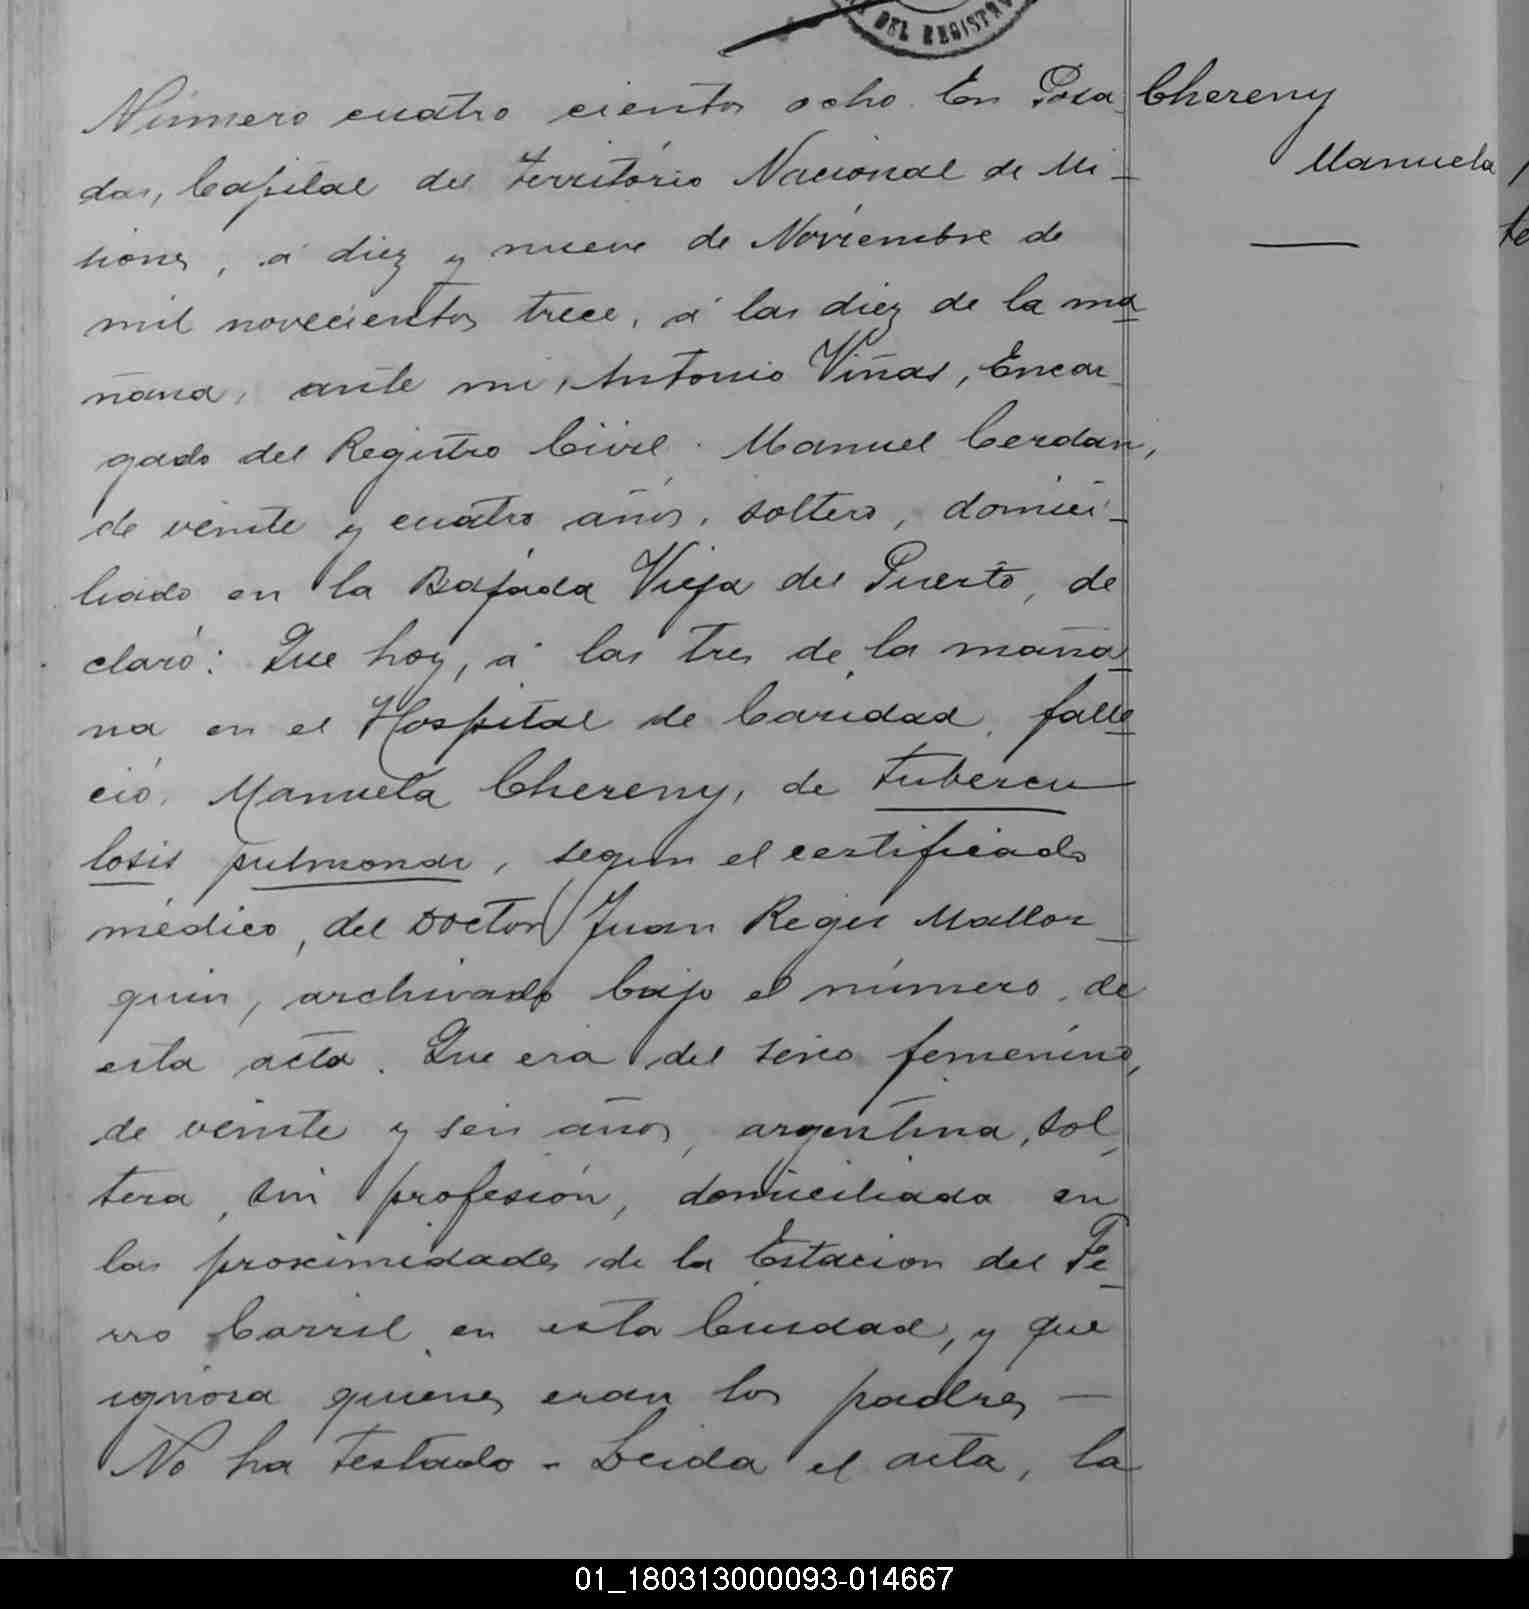 DEL REGISTR
Número cuatro cientos ocho. En Posa
das, Capital del territorio Nacional de Mi-
siones, á diez y nueve de Noviembre de
mil novecientos trece, á las diez de la ma
ñana, ante mi, Antonio Viñas, Encar
gado del Registro Civil. Manuel Cerdan,
de veinte y cuatro años, soltero, domici-
liado en la Bajada Vieja del Puerto, de
claró: Que hoy, á las tres de la maña
na en el Hospital de Caridad, falle
ció, Manuela Chereny, de tubercu
losis pulmonar, segun el certificado
médico, del Doctor Juan Regis Mallor
quin, archivado bajo el número, de
esta acta. Que era del sexo femenino,
de veinte y seis años, argentina, sol
tera, sin profesión, domiciliada en
las proximidades de la Estacion del Fe-
rro Carril en esta Ciudad, y que
ignora quienes eran los padres —
No ha testado - Leida el acta, la
Chereny
Manuela
te
01_180313000093-014667